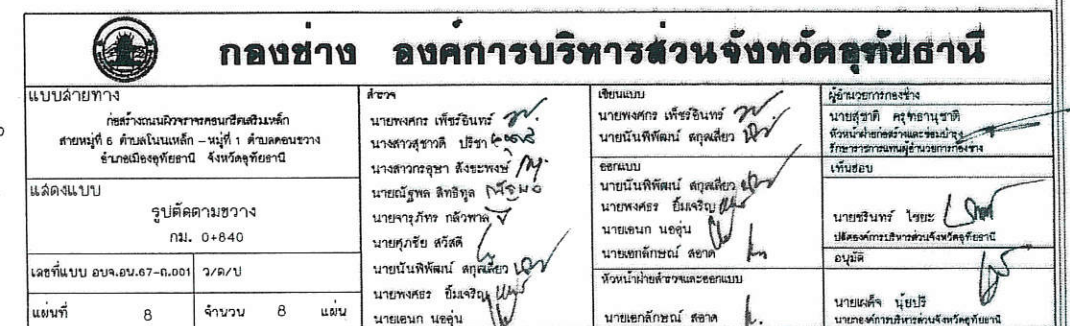 กองช่าง องค์การบริหารส่วนจังหวัดอุทัยธานี
แบบสายทาง
ก่อสร้างถนนผิวจราจรคอนกรีตเสริมเหล็ก
สายหมู่ที่ 6 ตำบลโนนเหล็ก - หมู่ที่ 1 ตำบลดอนขวาง
อำเภอเมืองอุทัยธานี จังหวัดอุทัยธานี
แสดงแบบ
รูปตัดตามขวาง
กม. 0+840
เลขที่แบบ อบจ.อน.67-ถ.001
ว/ด/ป
แผ่นที่ 8
จำนวน 8 แผ่น
สำรวจ
นายพงศกร เพ็ชร์อินทร์
นางสาวสุชาวดี ปรีชา
นางสาวกรอุษา สังขะพงษ์
นายณัฐพล สิทธิทูล
นายจารุภัทร กลัวพาล
นายศุภชัย สวัสดี
นายนันพิพัฒน์ สกุลเสียว
นายพงศธร ยิ้มเจริญ
นายเอนก นออุ่น
เขียนแบบ
นายพงศกร เพ็ชร์อินทร์
นายนันพิพัฒน์ สกุลเสียว
ออกแบบ
นายนันพิพัฒน์ สกุลเสียว
นายพงศธร ยิ้มเจริญ
นายเอนก นออุ่น
นายเอกลักษณ์ สอาด
หัวหน้าฝ่ายสำรวจและออกแบบ
นายเอกลักษณ์ สอาด
ผู้อำนวยการกองช่าง
นายสุชาติ ครุฑธานุชาติ
หัวหน้าฝ่ายก่อสร้างและซ่อมบำรุง
รักษาราชการแทนผู้อำนวยการกองช่าง
เห็นชอบ
นายชรินทร์ ไชยะ
ปลัดองค์การบริหารส่วนจังหวัดอุทัยธานี
อนุมัติ
นายเผด็จ นุ้ยปรี
นายกองค์การบริหารส่วนจังหวัดอุทัยธานี